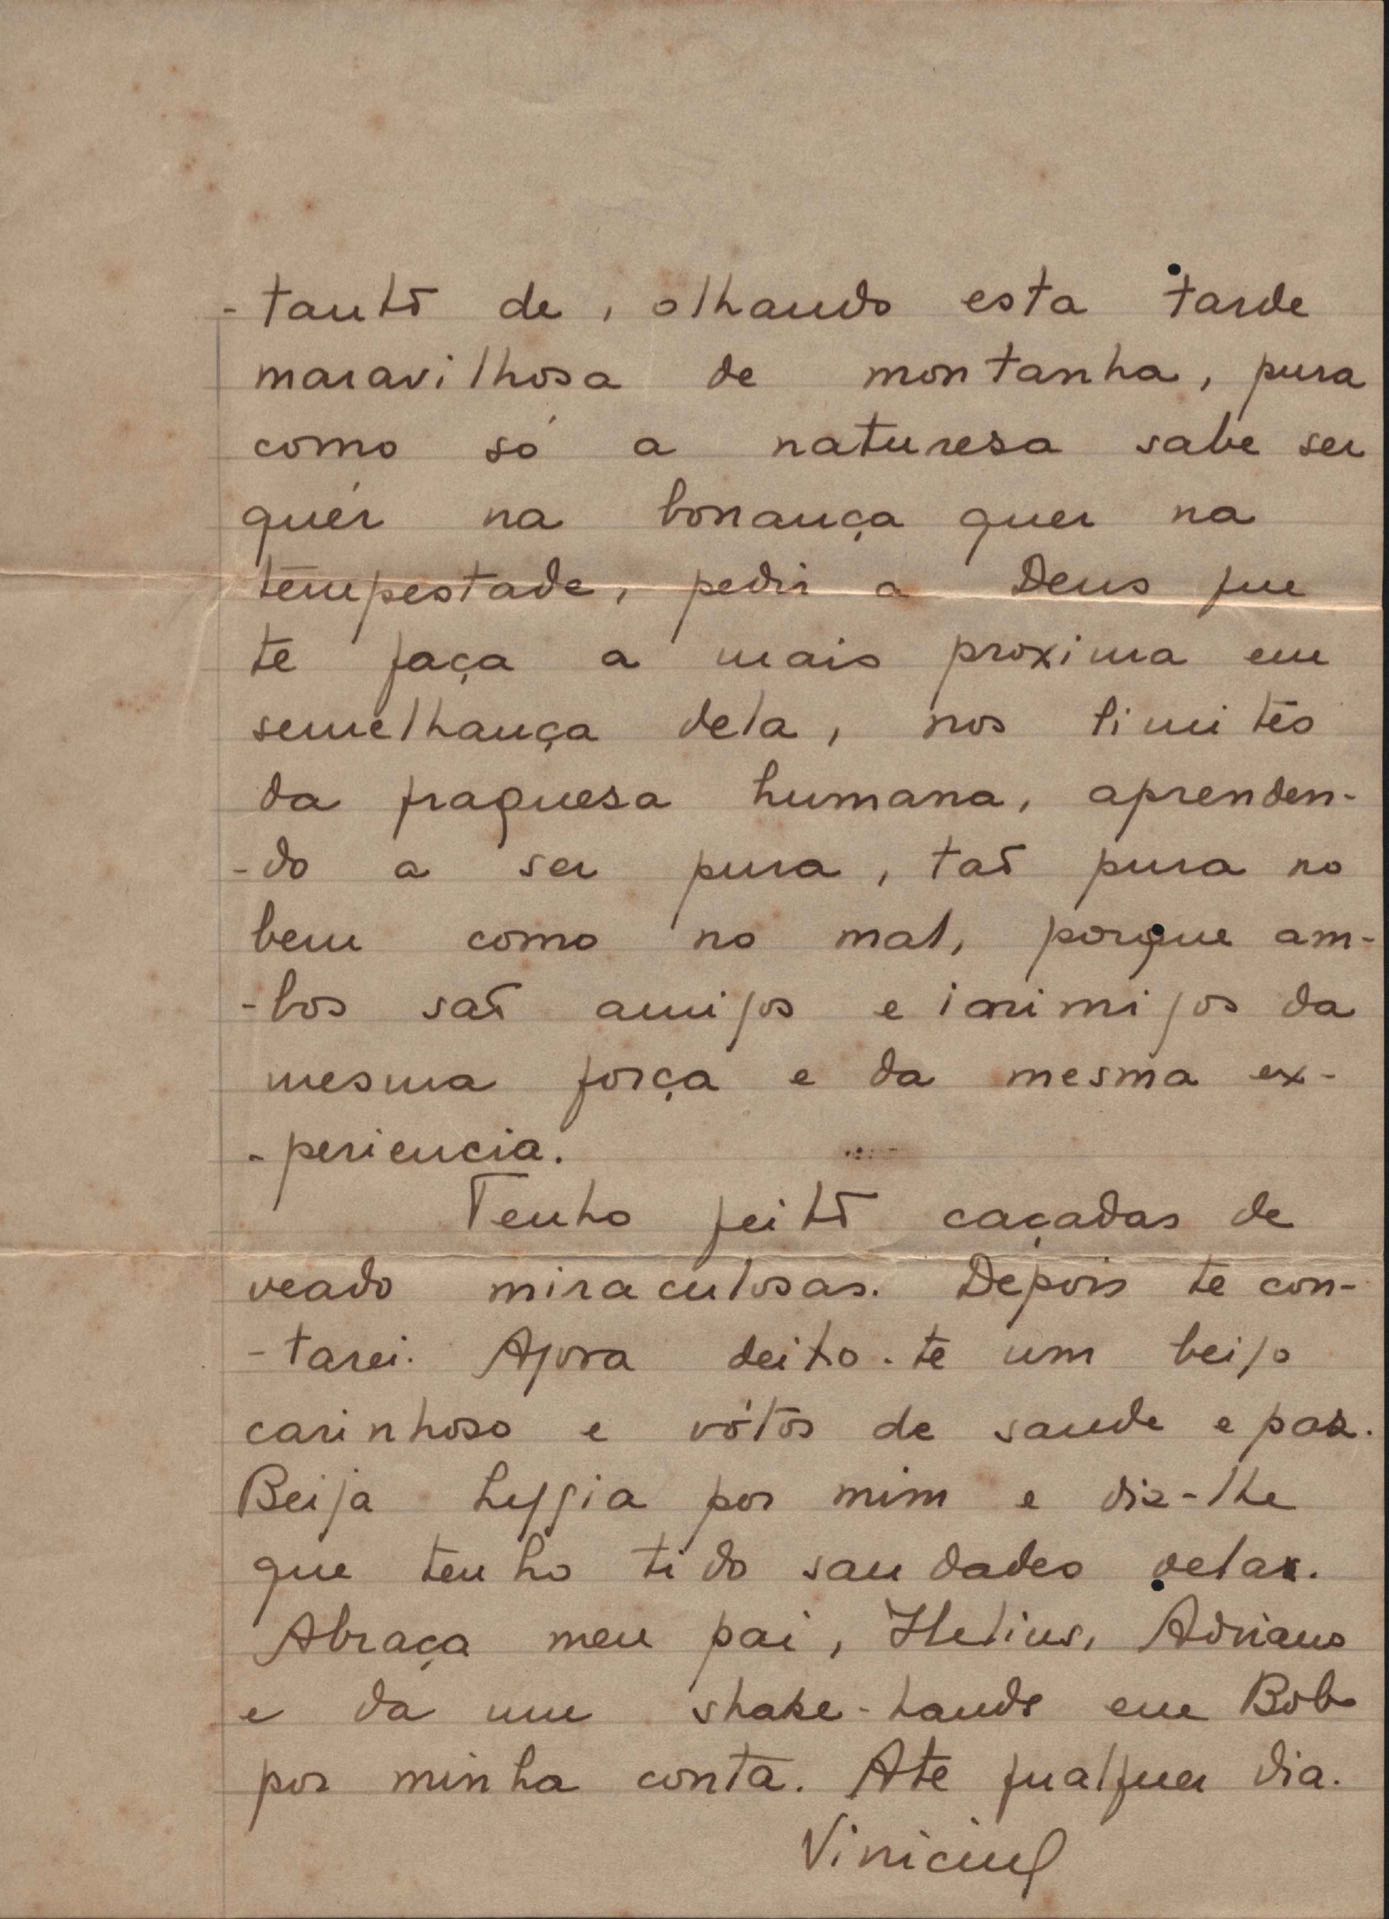 -tanto de, olhando esta tarde
maravilhosa de montanha, pura
como só a naturesa sabe ser
quér na bonança quer na
tempestade, pedir a Deus que
te faça a mais proxima em
semelhança dela, nos limites
da fraquesa humana, apren­den-
-do a ser pura, tão pura no
bem como no mal, porque am-
-bos são amigos e inimigos da
mesma força e da mesma ex-
-periencia.
Tenho feito caçadas de
veado miraculosas. Depois te con-
-tarei. Agora deito-te um beijo
carinhoso e vótos de saude e paz.
Beija Lygia por mim e diz-lhe
que tenho tido saudades dela.
Abraça meu pai, Helius, Adriano
e dá um shake-hands em Bob
por minha conta. Ate qualquer dia.
Vinicius